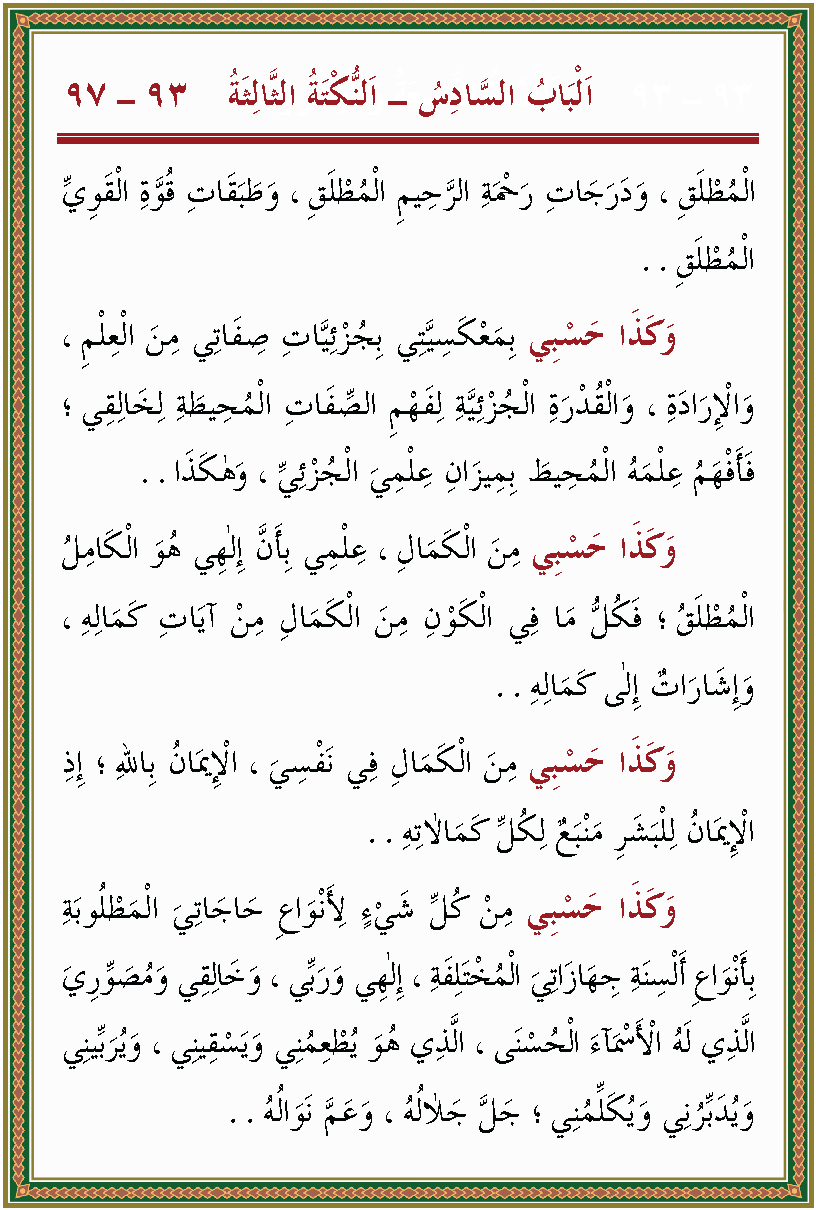 اَلْبَابُ السَّادِسُ ــ اَلنُّكْتَةُ الثَّالِثَةُ ٩٣ ــ ٩٧
الْمُطْلَقِ ، وَدَرَجَاتِ رَحْمَةِ الرَّحِيمِ الْمُطْلَقِ ، وَطَبَقَاتِ قُوَّةِ الْقَوِيِّ
الْمُطْلَقِ . .
وَكَذَا حَسْبِي بِمَعْكَسِيَّتِي بِجُزْئِيَّاتِ صِفَاتِي مِنَ الْعِلْمِ ،
وَالْإِرَادَةِ ، وَالْقُدْرَةِ الْجُزْئِيَّةِ لِفَهْمِ الصِّفَاتِ الْمُحِيطَةِ لِخَالِقِي ؛
فَأَفْهَمُ عِلْمَهُ الْمُحِيطَ بِمِيزَانِ عِلْمِيَ الْجُزْئِيِّ ، وَهٰكَذَا . .
وَكَذَا حَسْبِي مِنَ الْكَمَالِ ، عِلْمِي بِأَنَّ إِلٰهِي هُوَ الْكَامِلُ
الْمُطْلَقُ ؛ فَكُلُّ مَا فِي الْكَوْنِ مِنَ الْكَمَالِ مِنْ آيَاتِ كَمَالِهِ ،
وَإِشَارَاتٌ إِلٰى كَمَالِهِ . .
وَكَذَا حَسْبِي مِنَ الْكَمَالِ فِي نَفْسِيَ ، الْإِيمَانُ بِاللهِ ؛ إِذِ
الْإِيمَانُ لِلْبَشَرِ مَنْبَعٌ لِكُلِّ كَمَالَاتِهِ . .
وَكَذَا حَسْبِي مِنْ كُلِّ شَيْءٍ لِأَنْوَاعِ حَاجَاتِيَ الْمَطْلُوبَةِ
بِأَنْوَاعِ أَلْسِنَةِ جِهَازَاتِيَ الْمُخْتَلِفَةِ ، إِلٰهِي وَرَبِّي ، وَخَالِقِي وَمُصَوِّرِيَ
الَّذِي لَهُ الْأَسْمَآءَ الْحُسْنَى ، الَّذِي هُوَ يُطْعِمُنِي وَيَسْقِينِي ، وَيُرَبِّينِي
وَيُدَبِّرُنِي وَيُكَمِّلُنِي ؛ جَلَّ جَلَالُهُ ، وَعَمَّ نَوَالُهُ . .